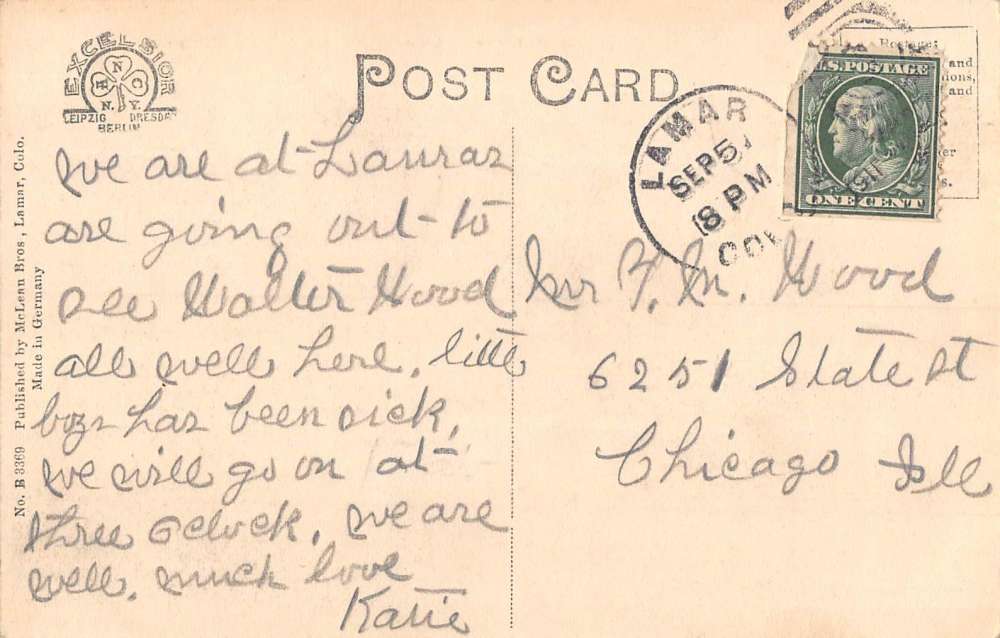 EXCELSIOR
H N C
N.Y.
LEIPZIG DRESDEN
BERLIN
POST CARD
we are at Lauras
are going out to
see Walter Wood
all well here, little
boy has been sick,
we will go on at
three oclock, we are
well. much love
Katie
No. B 3369 Published by McLean Bros, Lamar, Colo.
Made in Germany
LAMAR
SEP 5
8 PM
COLO
U.S. POSTAGE
ONE CENT
Postage:
and
and
Mr F. M. Wood
6251 State St
Chicago Ill